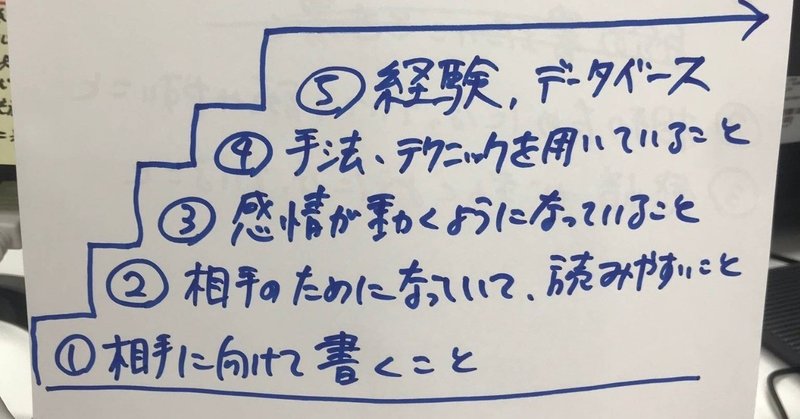 ⑤ 経験, データベース
④ 手法、テクニックを用いていること
③ 感情が動くようになっていること
② 相手のためになっていて、読みやすいこと
① 相手に向けて書くこと